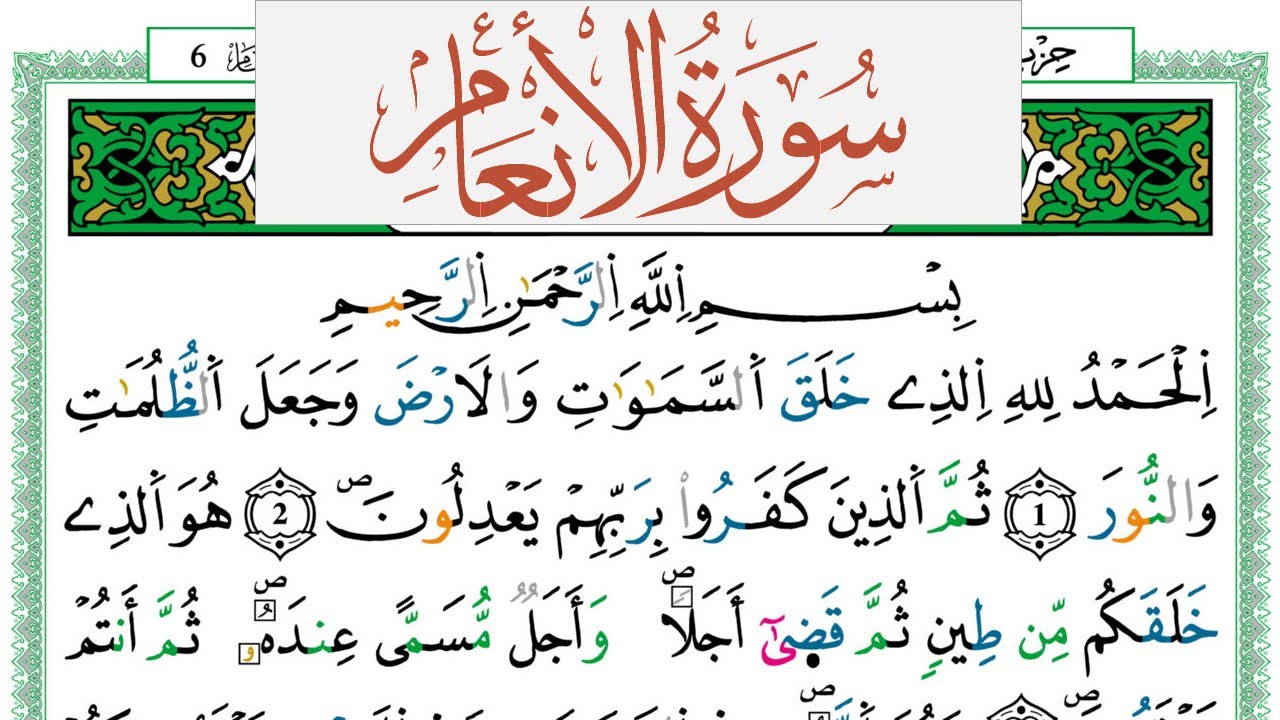 حِزْب
6
سُورَةُ الأَنْعَامِ
بِسْمِ اِللَّهِ اِلرَّحْمَٰنِ اِلرَّحِيمِ
اِلْحَمْدُ لِلهِ اِلذِے خَلَقَ اَلسَّمَٰوَٰتِ وَالَارْضَ وَجَعَلَ اَلظُّلُمَٰتِ
وَالنُّورَ 1 ثُمَّ اَلذِينَ كَفَرُواْ بِرَبِّهِمْ يَعْدِلُونَ ص 2 هُوَ اَلذِے
خَلَقَكُم مِّن طِينٍ ثُمَّ قَضَىٰٓ أَجَلًا ص وَأَجَلٌ مُّسَمًّى عِندَهُۥ ص ثُمَّ أَنتُمْ